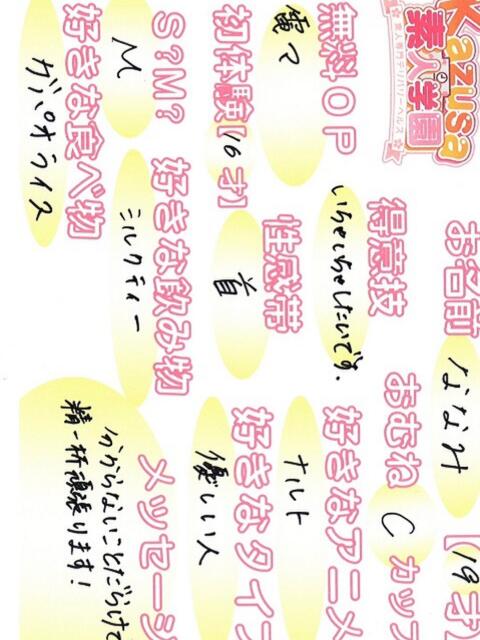 Kazusa
素人学園
☆素人専門デリバリーヘルス☆
お名前 ななみ [19才
おむね C カップ
得意技 いちゃいちゃしたいです。
好きなアニメ ナルト
無料OP 電マ
性感帯 首
好きなタイプ 優しい人
初体験[16才]
S?M? M
好きな飲み物 ミルクティー
好きな食べ物 ガパオライス
メッセージ
分からないことだらけで
精一杯頑張ります!